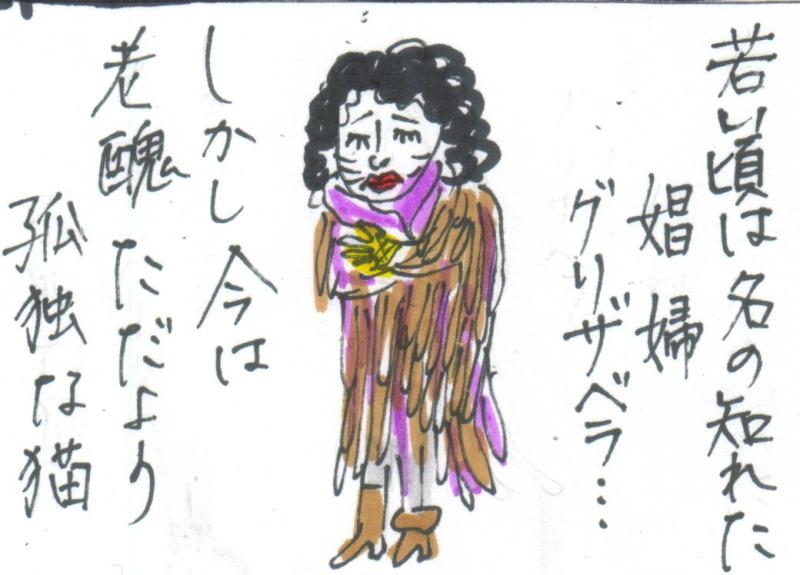 若い頃は名の知れた
娼婦
グリザベラ…
しかし今は
老醜ただより
孤独な猫